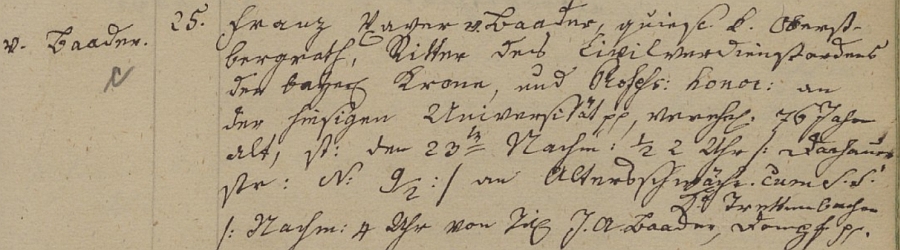 v. Baader. 25. Franz Xaver v. Baader, quiesc. k. Oberst-
bergrath, Ritter des Civilverdienstordens
der bayer. Krone, und Profess: honor: an
der hiesigen Universität pp, verehel. 76 Jahr
alt, st: den 23 Nachm: ½ 2 Uhr /: Dachauer
str: N: 9/2 :/ an Altersschwäche. Cum S. S.
Trettenbacher
/: Nachm: 4 Uhr von Tit J. A. Baader, Dompf pp.